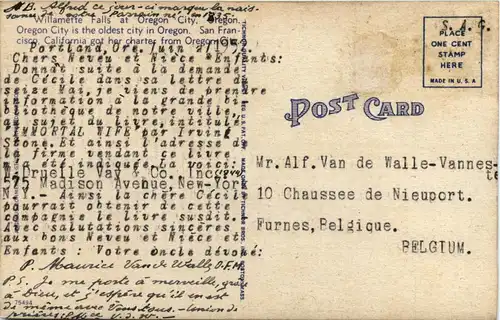 N.B. Alfred ce jour-ci marqua la nais-
sance de votre
Willamette Falls at Oregon City, Oregon.
Oregon City is the oldest city in Oregon. San Fran-
cisco, California got her charter from Oregon City.
Portland, Ore. Juin
Chers Neveu et Nièce Enfants:
Donnant suite à la demande
de Cécile dans sa lettre
seize Mai, je viens de prendre
information à la grande bi-
bliothèque de notre ville,
au sujet du livre, intitulé
IMMORTAL WIFE par Irving
Stone. et ainsi l'adresse de
la firme vendant ce livre
m'a été indiquée. La voici:
579 Madison Avenue, New-York
N.Y. Ainsi la chère Cécile
pourrait obtenir de cette
compagnie le livre susdit.
Avec salutations sincères
aux bons Neveu et Nièce et
Enfants: Votre oncle dévoué:
P. Maurice Van de Walle, O.F.M.
P.S. Je me porte à merveille, grâce
à Dieu, et j'espère qu'il en est
de même avec vous tous. - Union de
prières:
75494
POST CARD
S.A.C.
PLACE
ONE CENT
STAMP
HERE
MADE IN U.S.A
Mr. Alf. Van de Walle-Vannes-
te
10 Chaussee de Nieuport.
Furnes, Belgique.
BELGIUM.